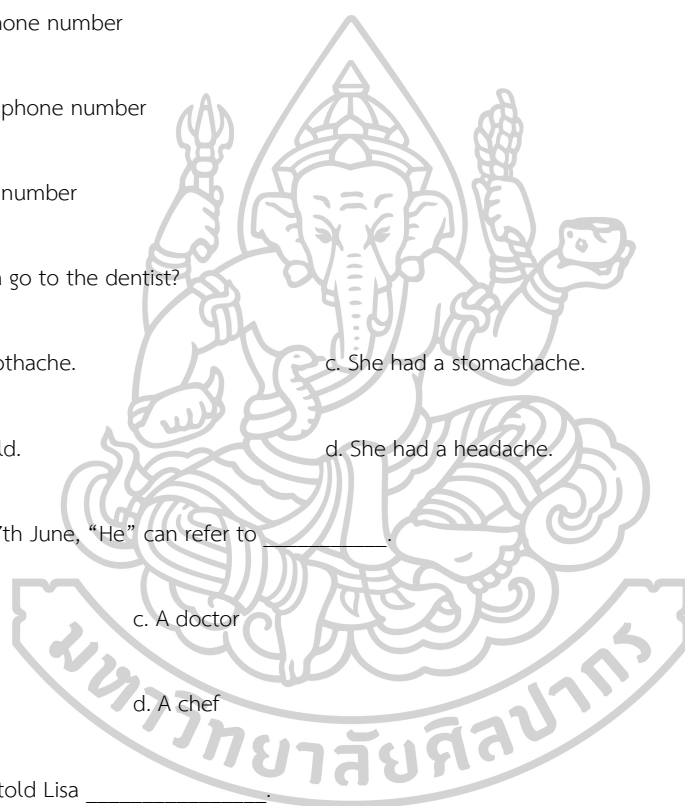 hone number
phone number
number
go to the dentist?
othache. c. She had a stomachache.
ld. d. She had a headache.
7th June, “He” can refer to ___________.
c. A doctor
d. A chef
told Lisa ________________.
มหาวิทยาลัยศิลปากร